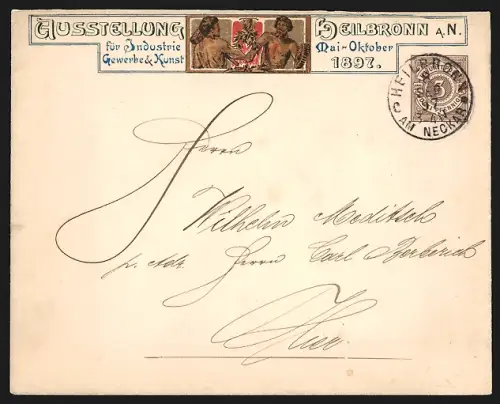 AUSSTELLUNG
für Industrie
Gewerbe & Kunst
HEILBRONN A.N.
Mai-Oktober
1897.
HEILBRONN
AM NECKAR
3
Herrn
Wilhelm Meditsch
p. Adr. Herrn Carl Berberich
Hier